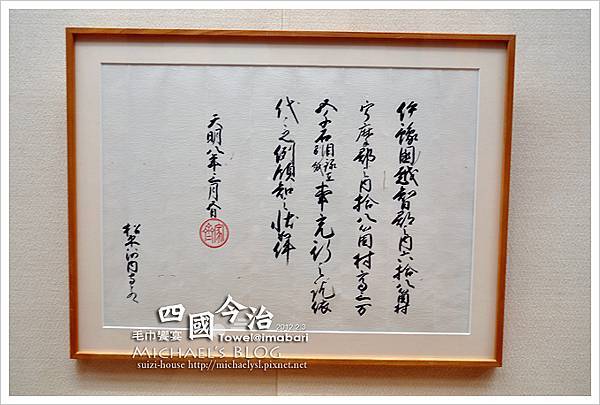 伊豫国越智郡之内六拾八箇村
宇摩郡之内拾八箇村高三万
五千石目録在別紙事充行之訖依
代々之例領知之状如件
天明八年三月五日
松平河内守とのへ
四國今治
2012.2.3
毛巾饗宴 Towel@imabari
MICHAEL'S BLOG
suizi-house http://michaelysl.pixnet.net